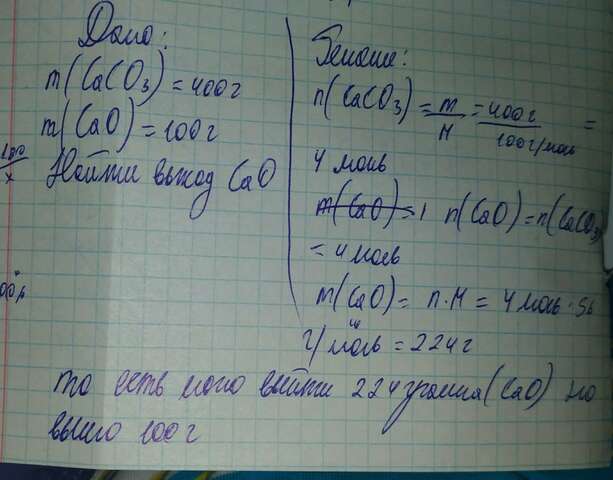 Дано:
m(CaCO₃) = 400г
m(CaO) = 100г
Найти выход CaO
Решение:
n(CaCO₃) = m/M = 400г/100г/моль =
4 моль
m(CaO) = 1 n(CaO) = n(CaCO₃)
= 4 моль
m(CaO) = n·M = 4 моль · 56
г/моль = 224г
то есть могло выйти 224 грамма (CaO) но
вышло 100г